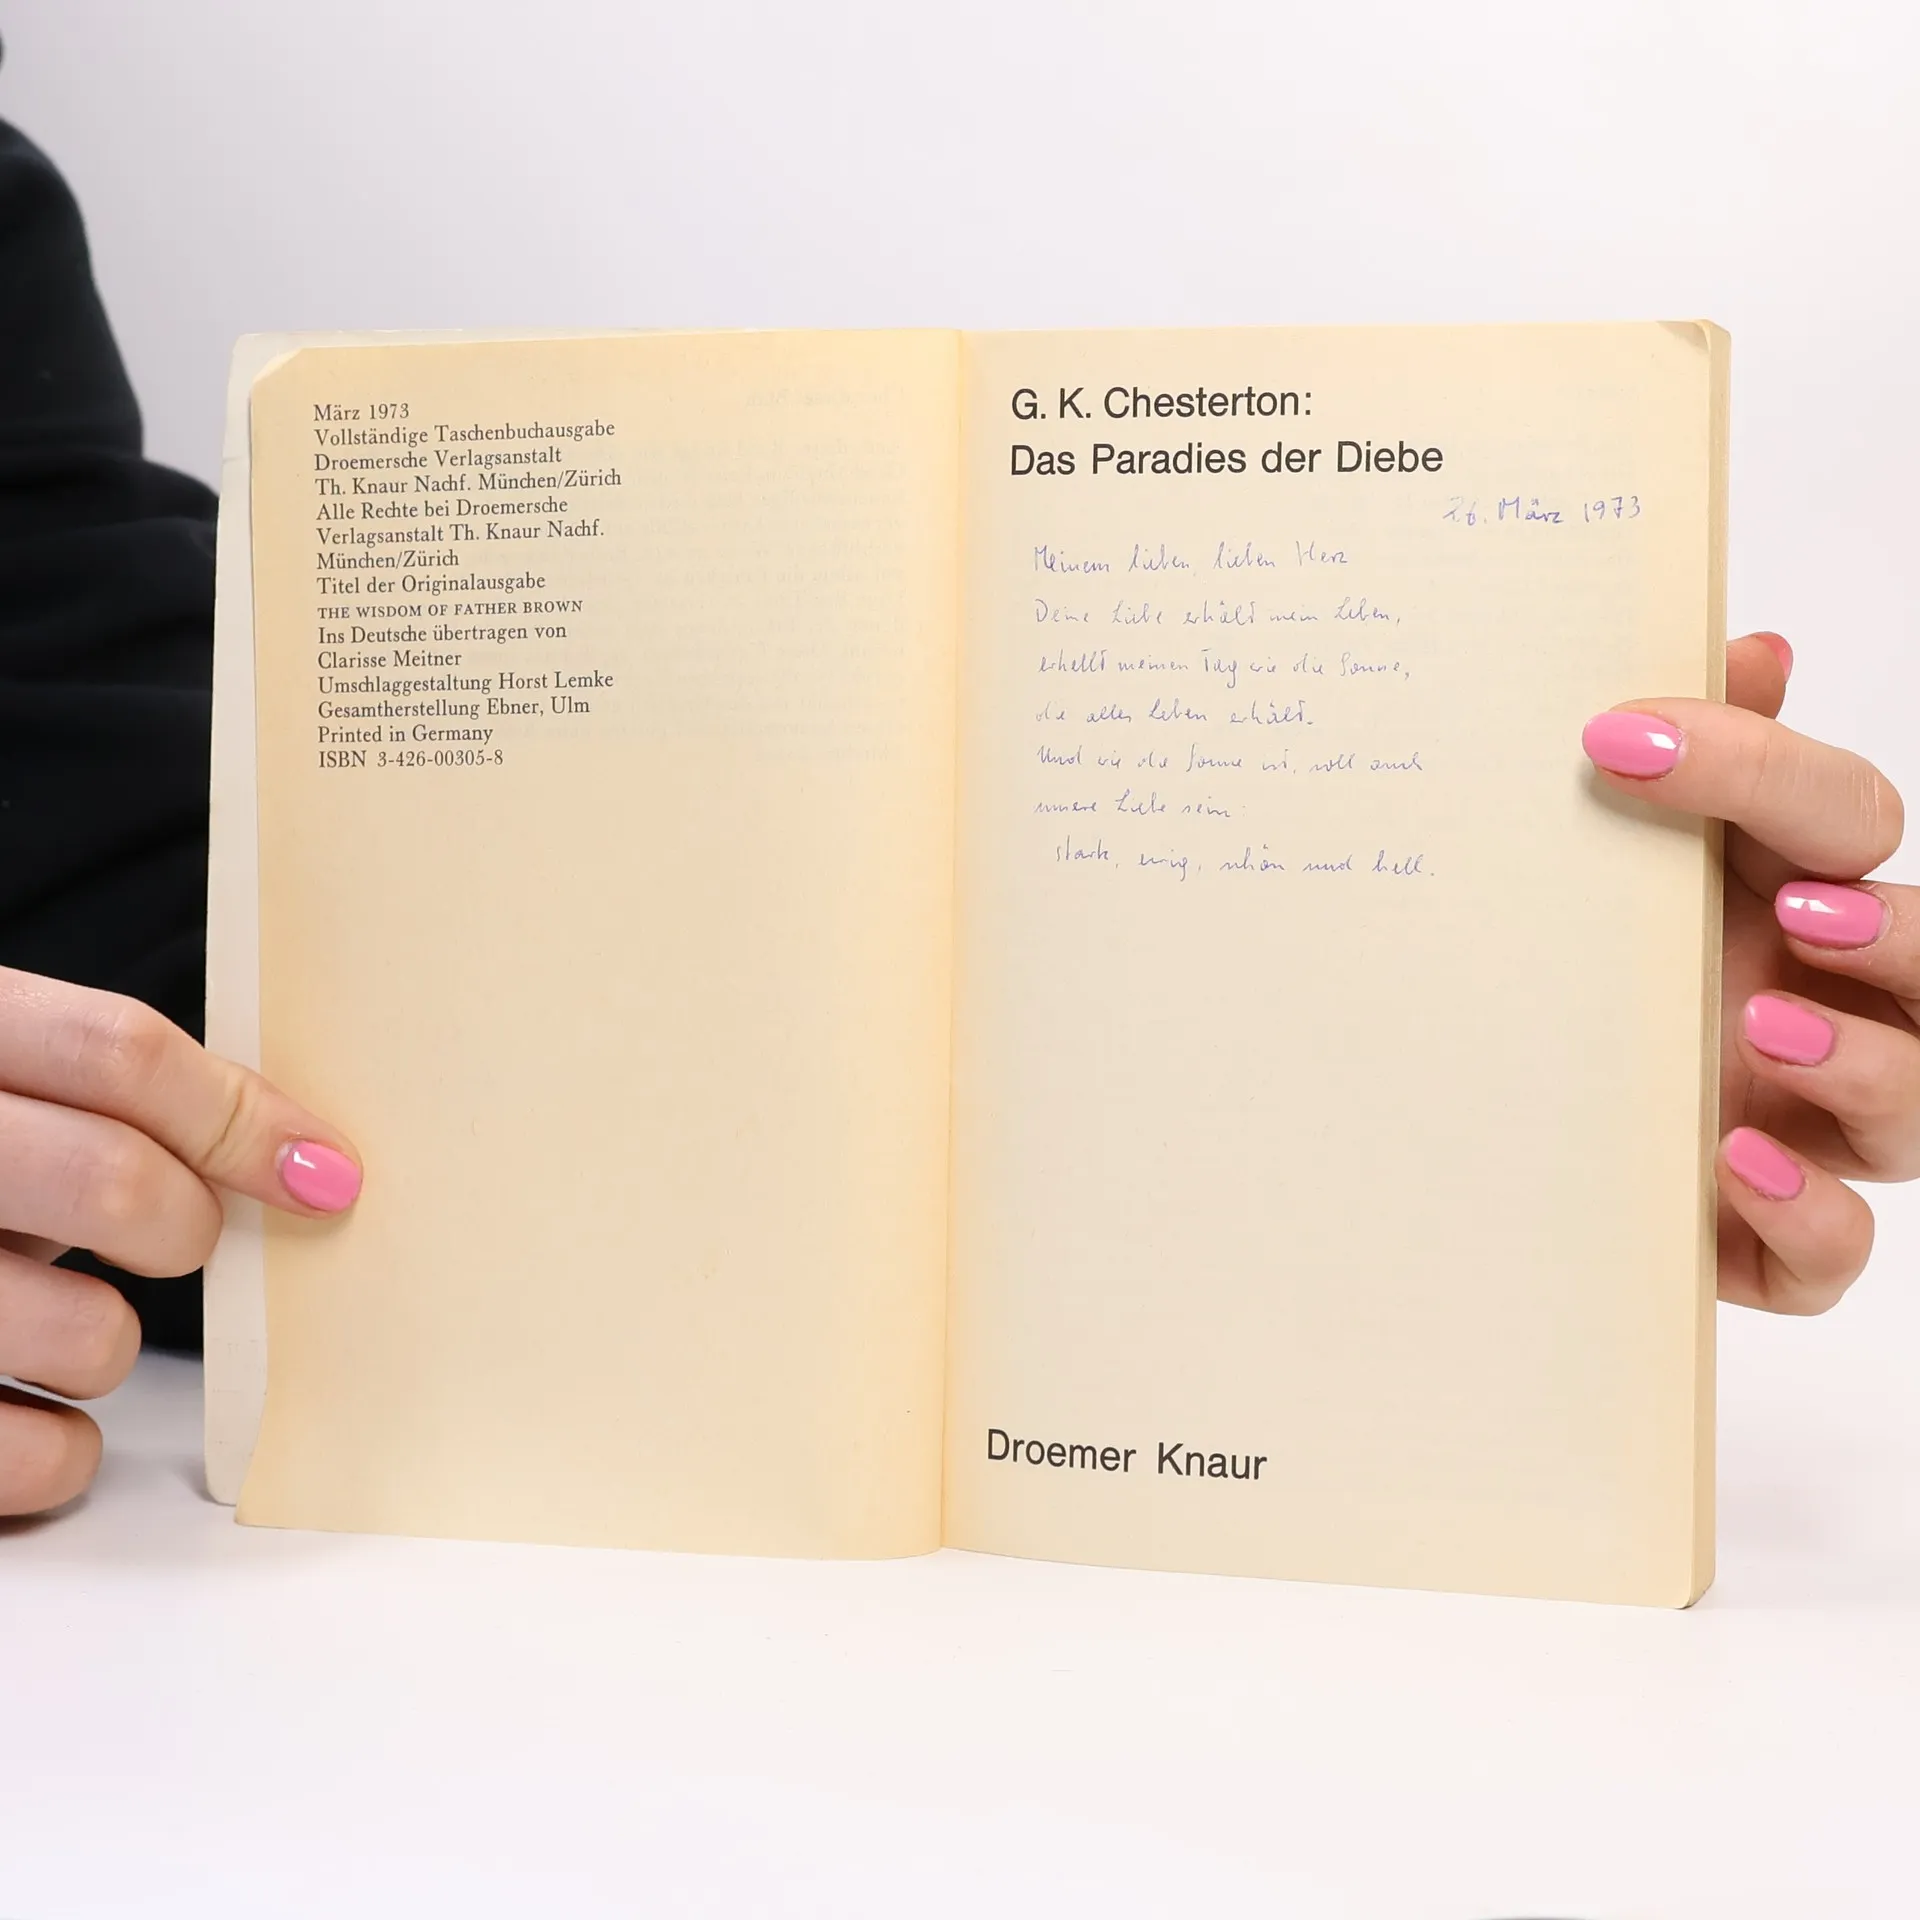 März 1973
Vollständige Taschenbuchausgabe
Droemersche Verlagsanstalt
Th. Knaur Nachf. München/Zürich
Alle Rechte bei Droemersche
Verlagsanstalt Th. Knaur Nachf.
München/Zürich
Titel der Originalausgabe
THE WISDOM OF FATHER BROWN
Ins Deutsche übertragen von
Clarisse Meitner
Umschlaggestaltung Horst Lemke
Gesamtherstellung Ebner, Ulm
Printed in Germany
ISBN 3-426-00305-8
G. K. Chesterton:
Das Paradies der Diebe
26. März 1973
Meinem lieben, lieben Herz
Deine Liebe erhält mein Leben,
erhellt meinen Tag wie die Sonne,
die alles Leben erhält.
Und wie die Sonne ist, soll auch
unsere Liebe sein:
stark, ewig, schön und hell.
Droemer Knaur